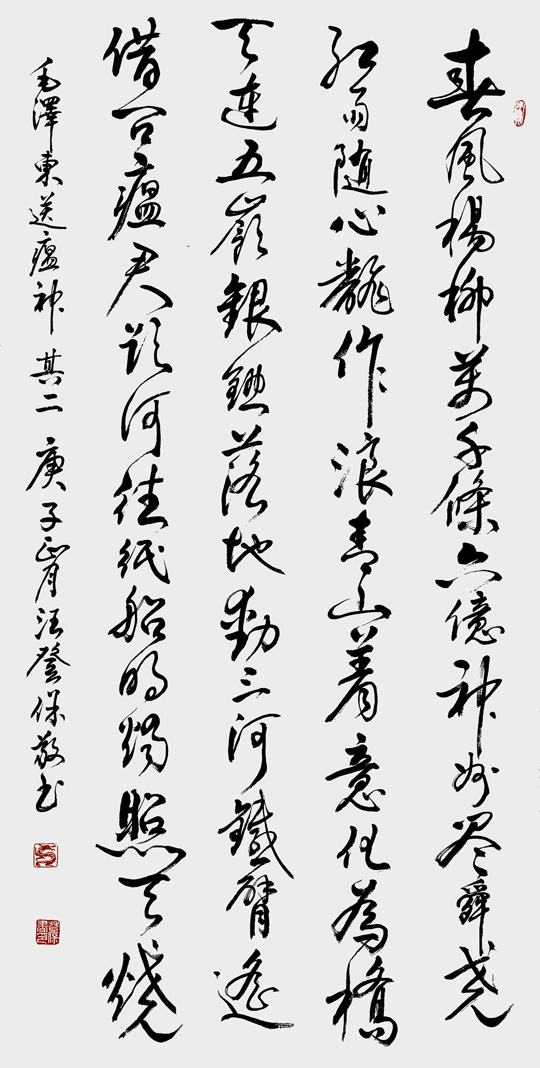 春風楊柳萬千條六億神州尽舜尧
紅雨随心翻作浪青山着意化為橋
天連五嶺銀鋤落地動三河鐵臂遙
借问瘟君欲何往紙船明燭照天燒
毛澤東送瘟神其二 庚子正月汪登保敬书